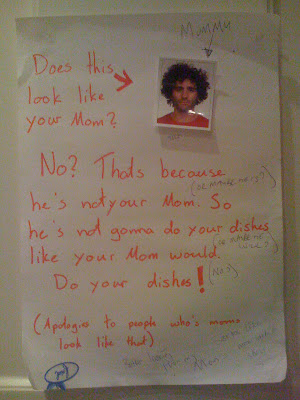 Mommy
Does this
look like
your Mom?
No? Thats because
(or maybe he is?)
he's not your Mom. So
he's not gonna do your dishes
(or maybe he
like your Mom would.
Do your dishes!
(No?)
(Apologies to people who's moms
look like that)